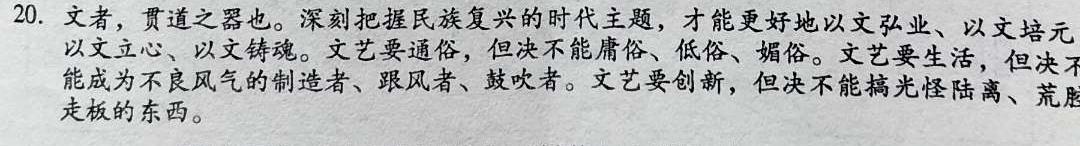 20. 文者，贯道之器也。深刻把握民族复兴的时代主题，才能更好地以文弘业、以文培元
以文立心、以文铸魂。文艺要通俗，但决不能庸俗、低俗、媚俗。文艺要生活，但决不
能成为不良风气的制造者、跟风者、鼓吹者。文艺要创新，但决不能搞光怪陆离、荒腔
走板的东西。